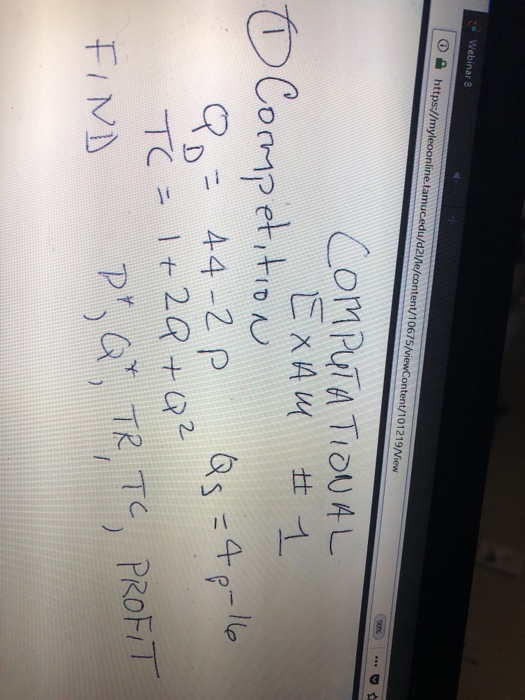 Webinar 8
https://myleoonline.tamuc.edu/d2l/le/content/10675/viewContent/101219/View
90%
COMPUTATIONAL
EXAM # 1
① Competition
QD = 44-2p QS = 4p-16
TC = 1+2Q+Q²
FIND P*, Q*, TR, TC, PROFIT